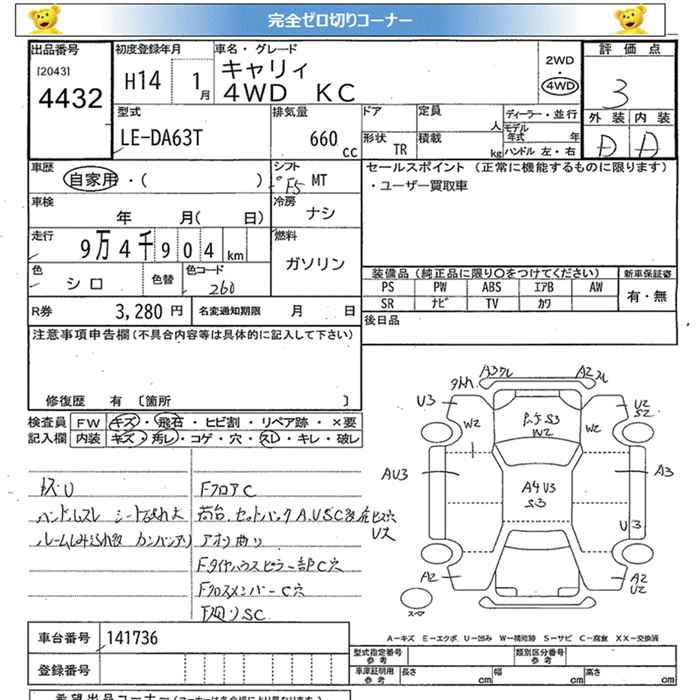 完全ゼロ切りコーナー
出品番号
[2043]
4432
初度登録年月
H14 1月
車名・グレード
キャリィ
4WD KC
2WD
・
4WD
評価点
3
外装 内装
D D
型式
LE-DA63T
排気量
660
cc
ドア
定員
人
形状
TR
積載
kg
ディーラー・並行
モデル年式 年
ハンドル 左・右
車歴
自家用・( )
シフト
F5 MT
車検
年 月( 日)
冷房
ナシ
走行
9万4千904 km
燃料
ガソリン
色
シロ
色替
色コード
260
R券
3,280 円
名変通知期限 月 日
セールスポイント(正常に機能するものに限ります)
・ユーザー買取車
装備品(純正品に限り○をつけてください)
新車保証書
PS PW ABS エアB AW
SR ナビ TV カワ
有・無
後日品
注意事項申告欄(不具合内容等は具体的に記入して下さい)
修復歴 有 〔箇所 〕
検査員記入欄
FW キズ・飛石・ヒビ割・リペア跡・×要
内装 キズ・汚レ・コゲ・穴・スレ・キレ・破レ
FフロアC
荷台
アオリ曲り
FクロスメンバーC穴
下廻りSC
A3 A2
U3 U2
S2
W2 W2
S3
W2
AU3 A3
A4 U3
S3
U3
A2 A2
U2
スペア
A-キズ E-エクボ U-凹み W-補修跡 S-サビ C-腐食 XX-交換済
車台番号
141736
登録番号
型式指定番号
参考
類別区分番号
参考
車庫証明用
参考
長さ cm
幅 cm
高さ cm
希望出品コーナー